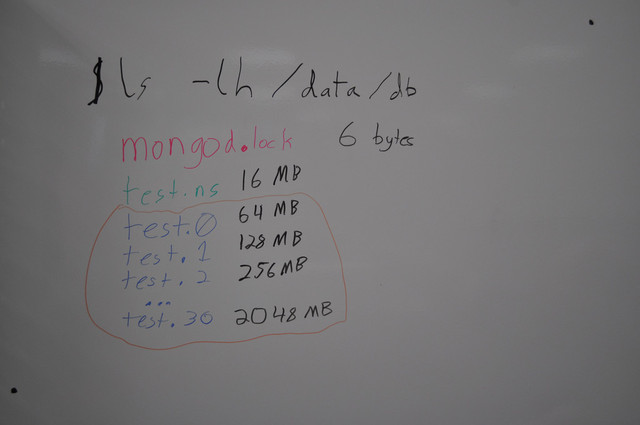 $ls -lh /data/db
mongod.lock 6 bytes
test.ns 16 MB
test.0 64 MB
test.1 128 MB
test.2 256 MB
...
test.30 2048 MB